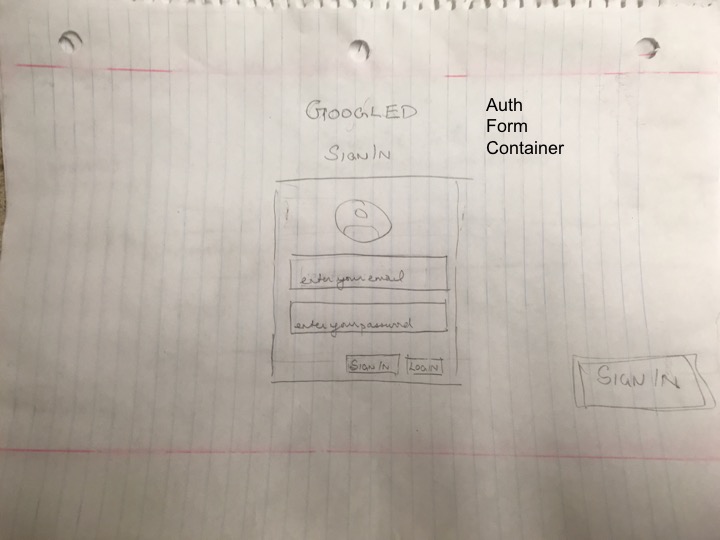 GOOGLED
Auth
Form
Container
SIGN IN
enter your email
enter your password
SIGN IN
LOGIN
SIGN IN